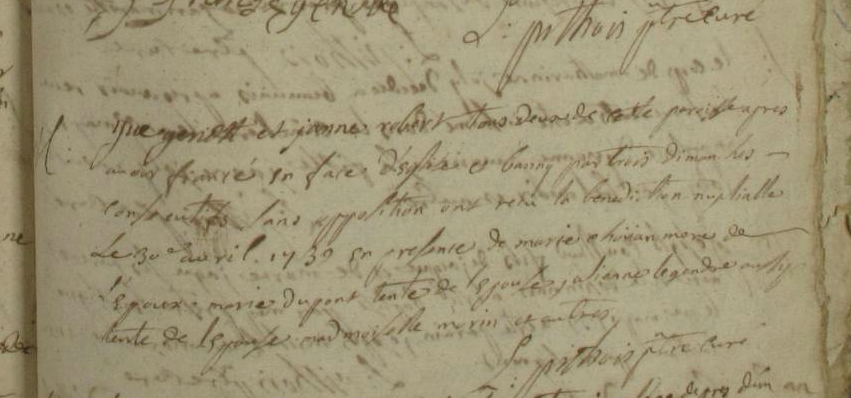 L: pithois ptre curé
et janne robert tous deux de cette paroisse apres
avoir fiancé en face d'église et banny par trois dimanches
consecutifs sans opposition ont recu la benediction nuptialle
Le 30e avril 1739 en presence de marie mere de
l'epoux marie dupont tente de l'epouse julianne legendre aussy
tente de l'epouse madmoiselle morin et autres
L: pithois ptre curé